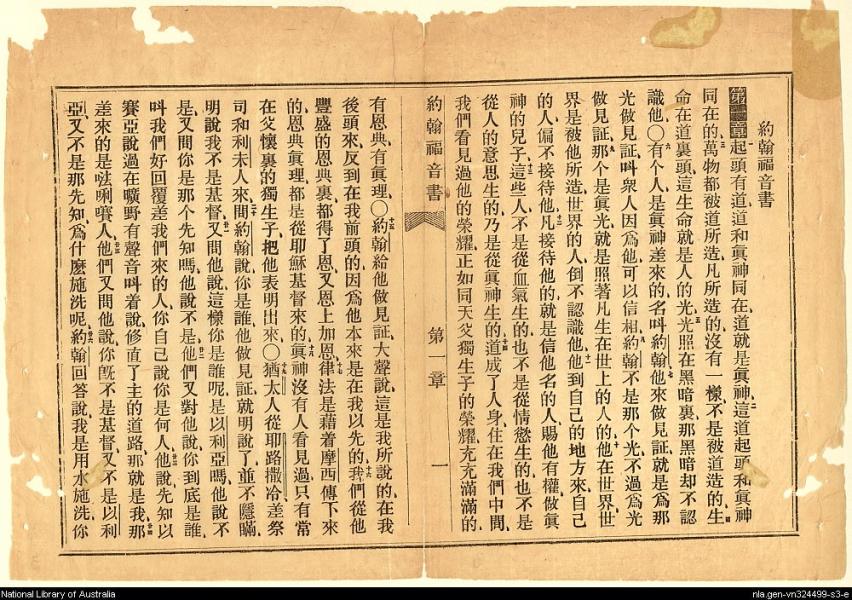 約翰福音書
第一章起頭有道、道和眞神同在、道就是眞神、二這道起頭和眞神
同在的、三萬物都被道所造、凡所造的、沒有一樣、不是被道造的、四生
命在道裏頭、這生命就是人的光、五光照在黑暗裏、那黑暗却不認
識他、〇六有个人、是眞神差來的、名叫約翰、七他來做見証、就是爲那
光做見証、叫衆人因爲他可以信相、八約翰不是那个光、不過爲光
做見証、九那个是眞光、就是照著凡生在世上的人的、十他在世界、世
界是被他所造、世界的人、倒不認識他、十一他到自己的地方來、自己
的人、偏不接待他、十二凡接待他的、就是信他名的人、賜他有權做眞
神的兒子、十三這些人、不是從血氣生的、也不是從情慾生的、也不是
從人的意思生的、乃是從眞神生的、十四道成了人身、住在我們中間、
我們看見過他的榮耀、正如同天父獨生子的榮耀、充充滿滿的
約翰福音書
第一章
一
有恩典、有眞理、〇十五約翰給他做見証、大聲說、這是我所說的、在我
後頭來、反到在我前頭的、因爲他本來是在我以先的、十六我們從他
豐盛的恩典裏、都得了恩、又恩上加恩、十七律法是藉着摩西傳下來
的、恩典眞理、都是從耶穌基督來的、十八眞神沒有人看見過、只有常
在父懷裏的獨生子、把他表明出來、〇十九猶太人從耶路撒冷差祭
司和利未人來、問約翰說、你是誰、二十他做見証、就明說了、並不隱瞞、
明說我不是基督、廿一又問他說、這樣你是誰呢、是以利亞嗎、他說不
是、又問你是那个先知嗎、他說不是、廿二他們又對他說、你到底是誰、
叫我們好回覆差我們來的人、你自己說你是何人、廿三他說、先知以
賽亞說過、在曠野有聲音叫着說、修直了主的道路、那就是我、廿四那
差來的是𠵽唎嚽人、廿五他們又問他說、你旣不是基督、又不是以利
亞、又不是那先知、爲什麼施洗呢、廿六約翰回答說、我是用水施洗、你
National Library of Australia
nla.gen-vn324499-s3-e